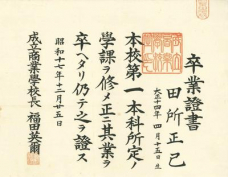 卒業證書
田所正己
大正十四年四月十五日生
本校第一本科所定ノ
學課ヲ修メ正ニ其業ヲ
卒ヘタリ仍テ之ヲ證ス
昭和十七年十二月廿五日
成立商業學校長 福田英爾